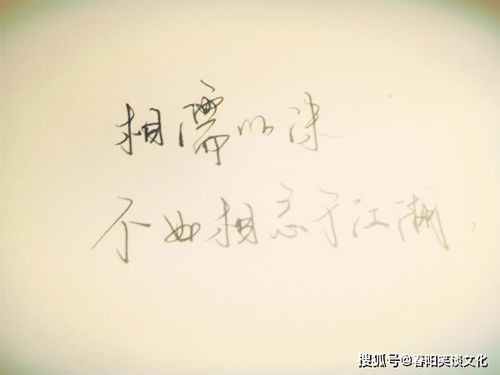 相濡以沫
不如相忘于江湖.
搜狐号@春阳笑谈文化